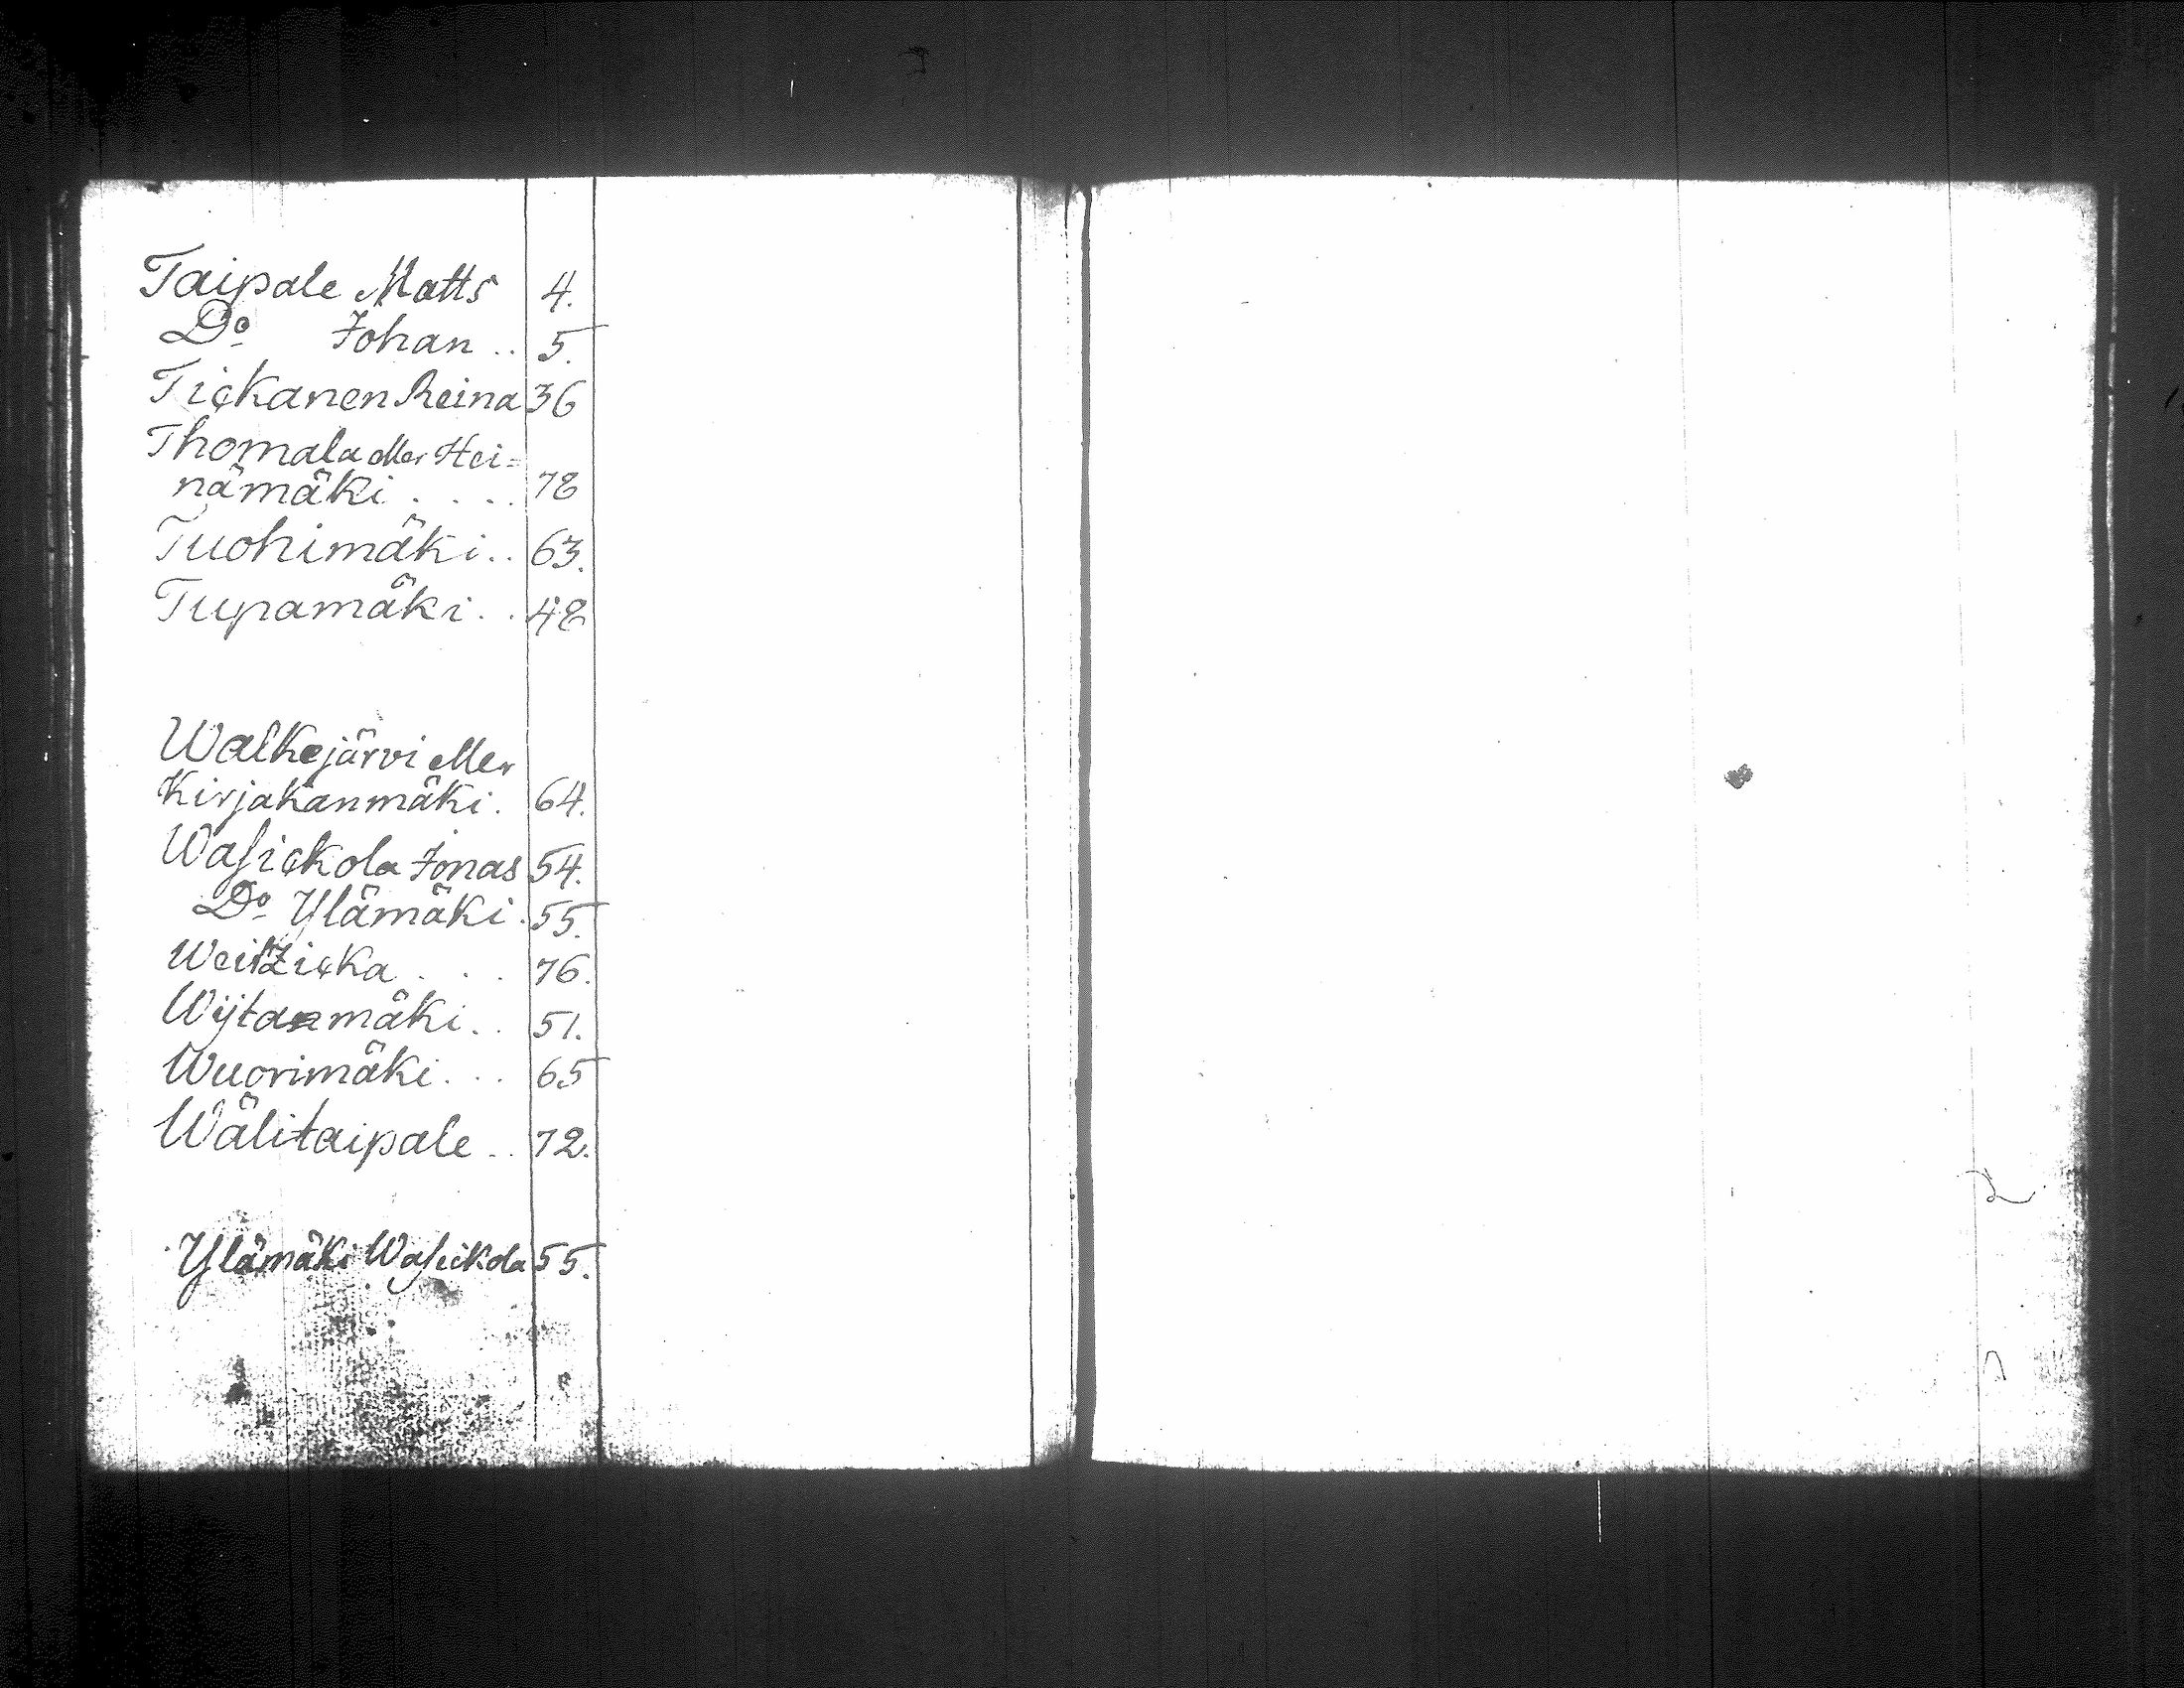 Taipale Matts 4.
Do Johan .. 5.
Tickanen Reina 36
Thomala eller Hei=
nämäki . . . . 78
Tuohimäki .. 63.
Tupamäki . . 48
Walkejärvi eller
Kirjakanmäki . 64.
Wasickola Jonas 54.
Do Ylämäki . 55.
Weitzicka . . . 76.
Wijtanmäki . . 51.
Wuorimäki . . . 65
Wälitaipale . . 72.
Ylämäki Wasickola 55.